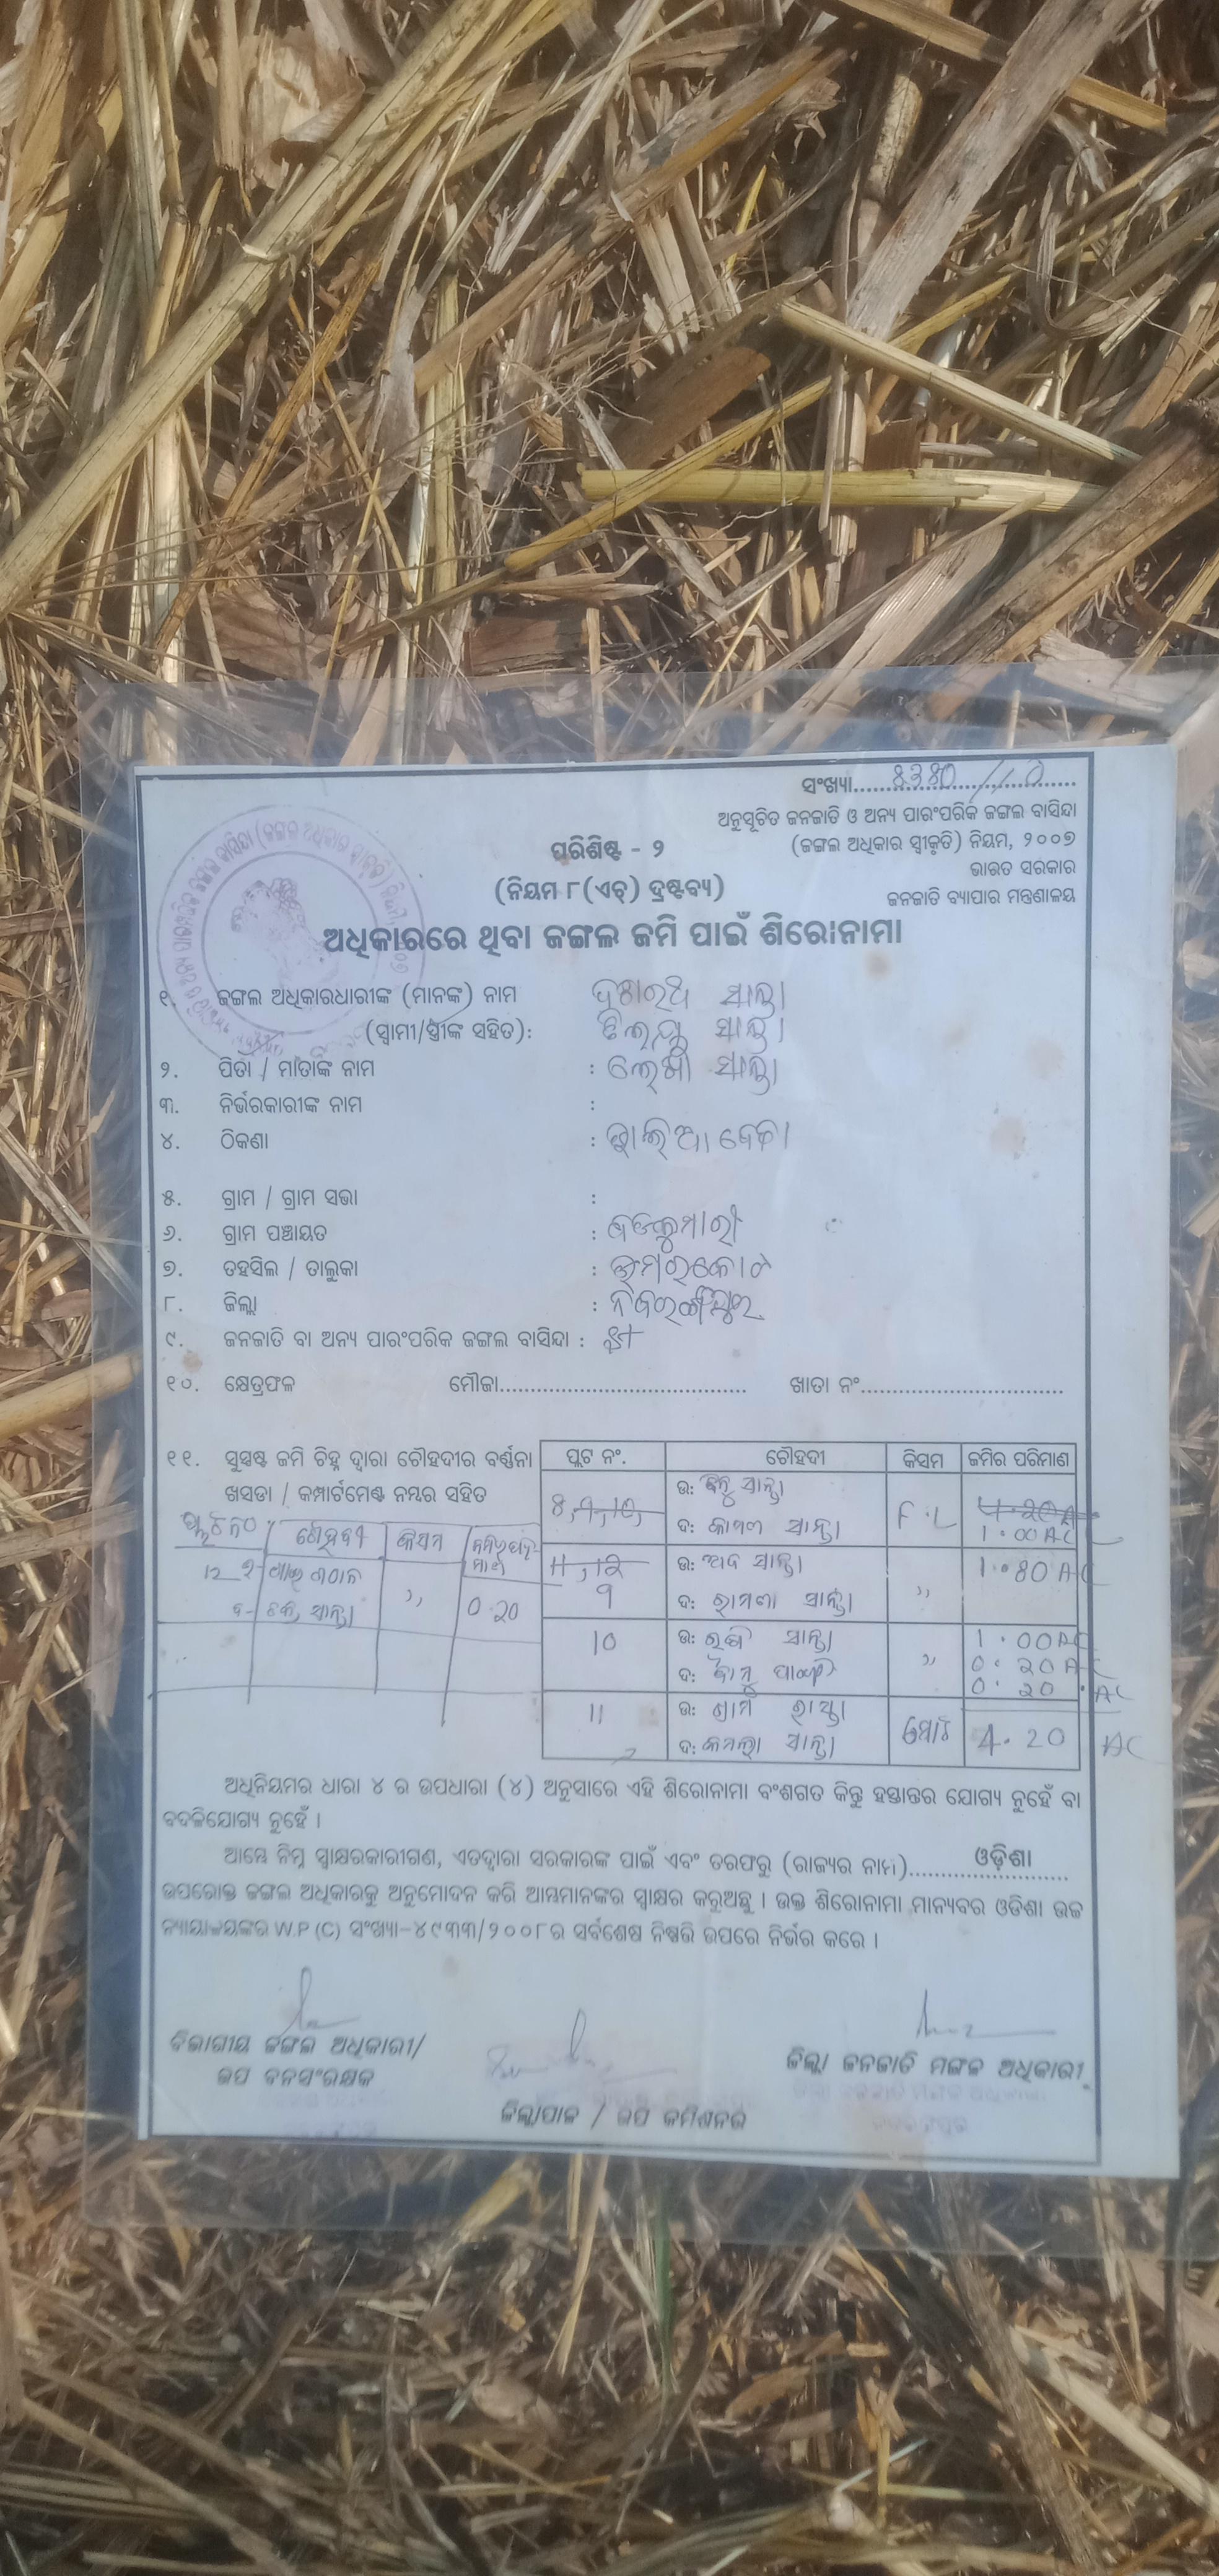 ସଂଖ୍ୟା..........8380/10..........
ଅନୁସୂଚିତ ଜନଜାତି ଓ ଅନ୍ୟ ପାରଂପରିକ ଜଙ୍ଗଲ ବାସିନ୍ଦା
(ଜଙ୍ଗଲ ଅଧିକାର ସ୍ୱୀକୃତି) ନିୟମ, ୨୦୦୭
ଭାରତ ସରକାର
ଜନଜାତି ବ୍ୟାପାର ମନ୍ତ୍ରଣାଳୟ
ପରିଶିଷ୍ଟ - ୨
(ନିୟମ ୮(ଏଚ୍) ଦ୍ରଷ୍ଟବ୍ୟ)
ଅଧିକାରରେ ଥିବା ଜଙ୍ଗଲ ଜମି ପାଇଁ ଶିରୋନାମା
୧. ଜଙ୍ଗଲ ଅଧିକାରଧାରୀଙ୍କ (ମାନଙ୍କ) ନାମ ଦଶରଥ ସାନ୍ତା
(ସ୍ୱାମୀ/ସ୍ତ୍ରୀଙ୍କ ସହିତ): ସାନ୍ତା
୨. ପିତା / ମାତାଙ୍କ ନାମ : ସାନ୍ତା
୩. ନିର୍ଭରକାରୀଙ୍କ ନାମ :
୪. ଠିକଣା : ଝାଲିଆ ବେଢା
୫. ଗ୍ରାମ / ଗ୍ରାମ ସଭା :
୬. ଗ୍ରାମ ପଞ୍ଚାୟତ : ବଡକୁମାରୀ
୭. ତହସିଲ / ତାଲୁକା : ଉମରକୋଟ
୮. ଜିଲ୍ଲା : ନବରଙ୍ଗପୁର
୯. ଜନଜାତି ବା ଅନ୍ୟ ପାରଂପରିକ ଜଙ୍ଗଲ ବାସିନ୍ଦା :
୧୦. କ୍ଷେତ୍ରଫଳ ମୌଜା.................................... ଖାତା ନଂ................................
୧୧. ସୁସ୍ପଷ୍ଟ ଜମି ଚିହ୍ନ ଦ୍ୱାରା ଚୌହଦୀର ବର୍ଣ୍ଣନା
ଖସଡା / କମ୍ପାର୍ଟମେଣ୍ଟ ନମ୍ବର ସହିତ
ପ୍ଲଟ ନଂ. ଚୌହଦୀ କିସମ ଜମିର ପରିମାଣ
8, 9, 10, ଉ: ସାନ୍ତା F.L 4.20 A
ଦ: ସାନ୍ତା 1.00 AC
11, 12 ଉ: ସାନ୍ତା 1.80 AC
9 ଦ: ସାନ୍ତା ,,
10 ଉ: ରବି ସାନ୍ତା ,, 1.00 AC
ଦ: 0.20 AC
0.20 AC
11 ଉ: ଗ୍ରାମ ରାସ୍ତା ମୋଟ 4.20 AC
ଦ: କମଲା ସାନ୍ତା
ପ୍ଲଟ ନଂ ଚୌହଦୀ କିସମ ଜମିର ପରିମାଣ
12 ,, 0.20
ସାନ୍ତା
ଅଧିନିୟମର ଧାରା ୪ ର ଉପଧାରା (୪) ଅନୁସାରେ ଏହି ଶିରୋନାମା ବଂଶଗତ କିନ୍ତୁ ହସ୍ତାନ୍ତର ଯୋଗ୍ୟ ନୁହେଁ ବା
ବଦଳିଯୋଗ୍ୟ ନୁହେଁ ।
ଆମ୍ଭେ ନିମ୍ନ ସ୍ୱାକ୍ଷରକାରୀଗଣ, ଏତଦ୍ୱାରା ସରକାରଙ୍କ ପାଇଁ ଏବଂ ତରଫରୁ (ରାଜ୍ୟର ନାମ)..........ଓଡ଼ିଶା..........
ଉପରୋକ୍ତ ଜଙ୍ଗଲ ଅଧିକାରକୁ ଅନୁମୋଦନ କରି ଆମ୍ଭମାନଙ୍କର ସ୍ୱାକ୍ଷର କରୁଅଛୁ । ଉକ୍ତ ଶିରୋନାମା ମାନ୍ୟବର ଓଡିଶା ଉଚ୍ଚ
ନ୍ୟାୟାଳୟଙ୍କର W.P (C) ସଂଖ୍ୟା-୪୯୩୩/୨୦୦୮ର ସର୍ବଶେଷ ନିଷ୍ପତ୍ତି ଉପରେ ନିର୍ଭର କରେ ।
ବିଭାଗୀୟ ଜଙ୍ଗଲ ଅଧିକାରୀ/
ଉପ ବନସଂରକ୍ଷକ
ଜିଲ୍ଲାପାଳ / ଉପ କମିଶନର
ଜିଲ୍ଲା ଜନଜାତି ମଙ୍ଗଳ ଅଧିକାରୀ